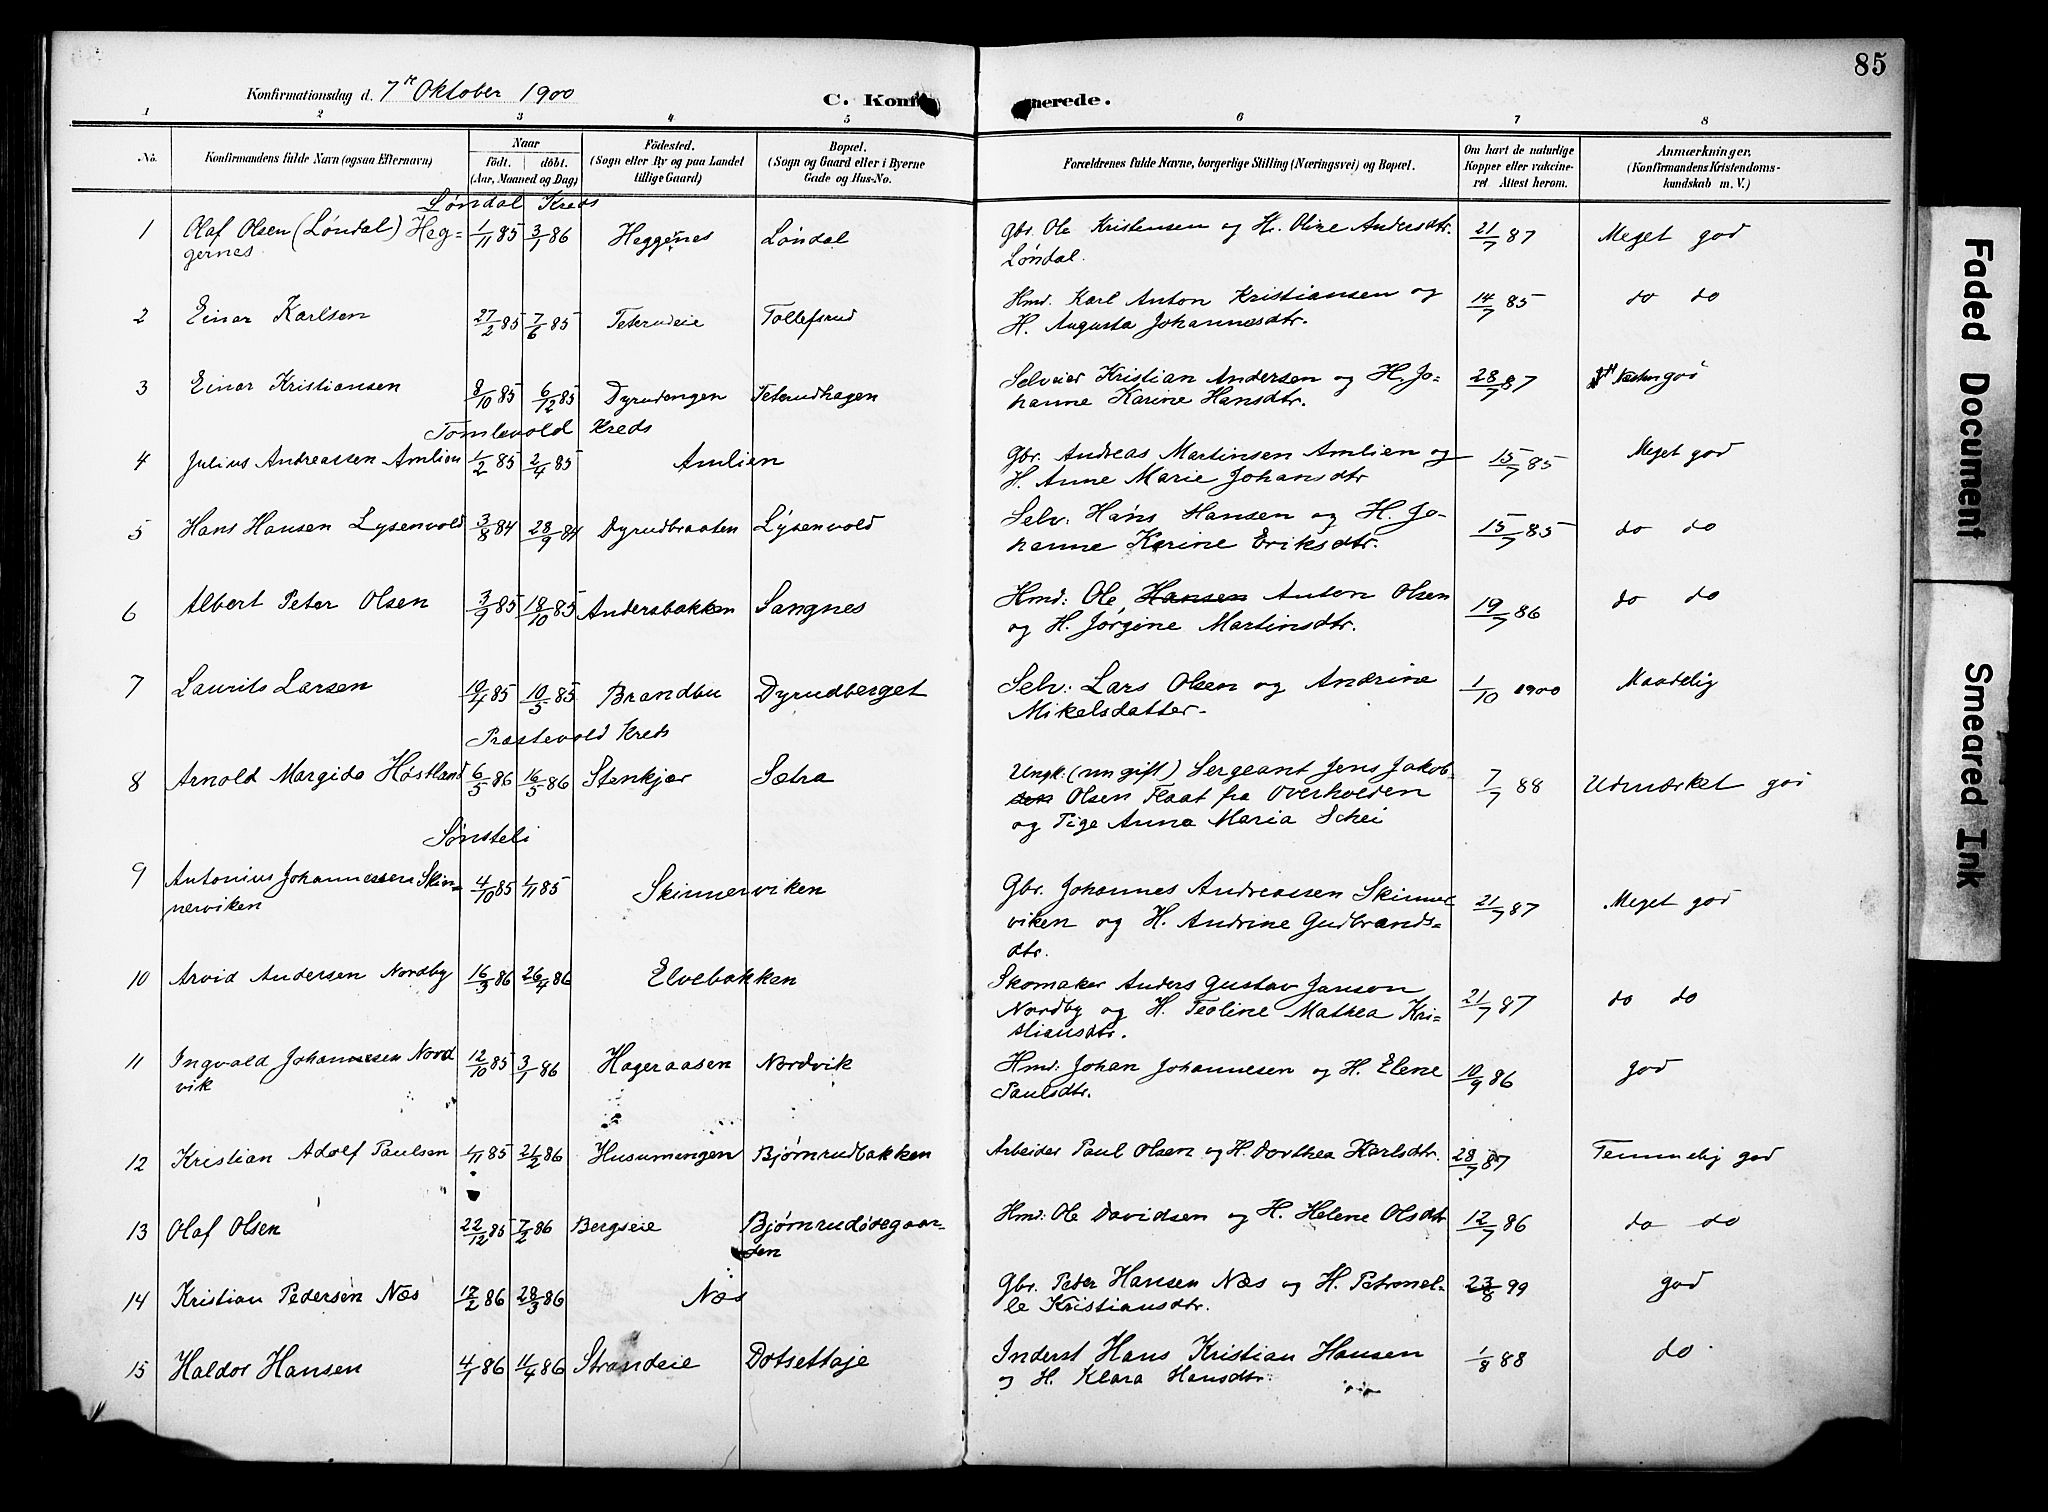 85
Konfirmationsdag d. 7de Oktober 1900 C. Konf nerede.
1 2 3 4 5 6 7 8
No. Konfirmandens fulde Navn (ogsaa Efternavn) Naar födt. döbt. (Aar, Maaned og Dag) Födested. (Sogn eller By og paa Landet tillige Gaard) Bopæl. (Sogn og Gaard eller i Byerne Gade og Hus-No. Forældrenes fulde Navne, borgerlige Stilling (Næringsvei) og Bopæl. Om havt de naturlige Kopper eller vakcineret Attest herom. Anmærkninger. (Konfirmandens Kristendomskundskab m. V.)
Løndal Kreds
1 Olaf Olsen (Løndal) Heg- 1/11 85 3/1 86 Heggenes Løndal Gbr. Ole Kristensen og H. Oline Andersdtr. 21/7 87 Meget god
gernes. Løndal.
2 Einar Karlsen 27/2 85 7/6 85 Teterudeie Tollefsrud Hmd. Karl Anton Kristiansen og 14/7 85 do do
H. Augusta Johannesdtr.
3 Einar Kristiansen 8/10 85 6/12 85 Dyrudengen Teterudhagen Selveier Kristian Andersen og H. Jo- 28/7 87 Næsten god
hanne Karine Hansdtr.
Tomlevold Kreds
4 Julius Andreassen Amlien 1/2 85 2/4 85 Amlien Gbr. Andreas Martinsen Amlien og 15/7 85 Meget god
H. Anne Marie Johansdtr
5 Hans Hansen Lysenvold 3/8 84 28/9 84 Dyrudbraaten Lysenvold Selv: Hans Hansen og H. Jo- 15/7 85 do do
hanne Karine Eriksdtr.
6 Albert Peter Olsen 3/9 85 18/10 85 Andersbakken Sangnes Hmd: Ole Hansen Anton Olsen 19/7 86 do do
og H. Jørgine Martinsdtr.
7 Laurits Larsen 19/4 85 10/5 85 Brandbu Dyrudberget Selv: Lars Olsen og Andrine 1/10 1900 Maadelig
Mikelsdatter.
Præstevold Kreds
8 Arnold Margido Høstland 6/5 86 16/5 86 Stenkjær Sætra Ungk. (nu gift) Sergeant Jens Jakob- 7/7 88 Udmærket god
sen Olsen Flaat fra Overhalden
og Pige Anna Maria Schei
Sønsteli
9 Antonius Johannessen Skin- 4/10 85 1/11 85 Skinnerviken Gbr. Johannes Andreassen Skinner 21/7 87 Meget god
nerviken viken og H. Andrine Gudbrands-
dtr.
10 Arvid Andersen Nordby 16/3 86 26/4 86 Elvebakken Skomaker Anders Gustav Janson 21/7 87 do do
Nordby og H. Teoline Mathea Kri-
stiansdtr.
11 Ingvald Johannesen Nord 12/10 85 3/1 86 Hageraasen Nordvik Hmd: Johan Johannesen og H. Elene 10/9 86 god
vik Paulsdtr.
12 Kristian Adolf Paulsen 1/11 85 21/2 86 Husumengen Bjørnrudbakken Arbeider Paul Olsen og H. Dorthea Karlsdtr. 28/7 87 Temmelig god
13 Olaf Olsen 22/12 85 7/2 86 Bergseie Bjørnrudødegaar- Hmd: Ole Davidsen og H. Helene Olsdtr 12/7 86 do do
den
14 Kristian Pedersen Næs 12/2 86 28/3 86 Næs Gbr. Peter Hansen Næs og H. Petronel- 23/8 99 god
le Kristiansdtr.
15 Haldor Hansen 4/1 86 11/4 86 Strandeie Dotsettaje Inderst Hans Kristian Hansen 1/8 88 do.
og H. Klara Hansdtr.
Faded Document
Smeared Ink